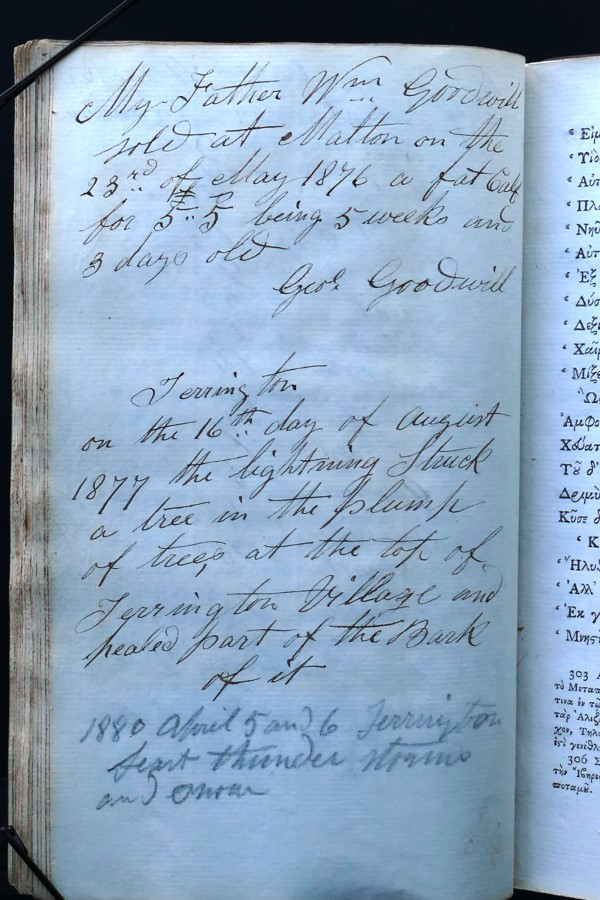 My Father Wm Goodwill
sold at Malton on the
23rd of May 1876 a fat Calf
for £5" 5 being 5 weeks and
3 days old
Geoe Goodwill
Terrington
on the 16th day of August
1877 the lightning Struck
a tree in the plump
of trees at the top of
Terrington Village and
pealed part of the Bark
of it
1880 April 5 and 6 Terrington
thunder storms
and
' Εἰμ
' Υἱὸ
' Αὐτ
' Πλο
' Νηῦ
' Αὐτ
' Ἐξ
' Δύσ
' Δεξι
' Χαῖρ
' Μίξε
Ὣς
Ἀμφο
Χθ
Τῦ δ'
Δερμ
Κῦσε δ
' Κ
' Ἤλυθ
' Ἀλλ'
' Ἐκ γ
' Μνησ
303 Α
τὸ Μεταπ
τινα ἐν τῷ
τὰρ Ἀλιζ
χον, Τηλε
ἐστὶ γενέθλ
306 Σ
τὴν
ποταμῦ.